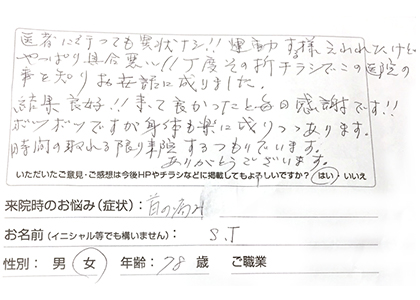 医者に行っても異状ナシ!! 運動する様言われたけど
やっぱり具合悪い!! 丁度その折チラシでこの医院の
事を知りお世話に成りました。
結果良好!! 来て良かったと毎日感謝です!!
ボツボツですが身体も楽に成りつつあります。
時間の取れる限り来院するつもりでいます。
ありがとうございます。
いただいたご意見・ご感想は今後HPやチラシなどに掲載してもよろしいですか? はい・いいえ
来院時のお悩み(症状): 首の痛み
お名前(イニシャル等でも構いません): S.T
性別: 男 女 年齢: 78 歳 ご職業